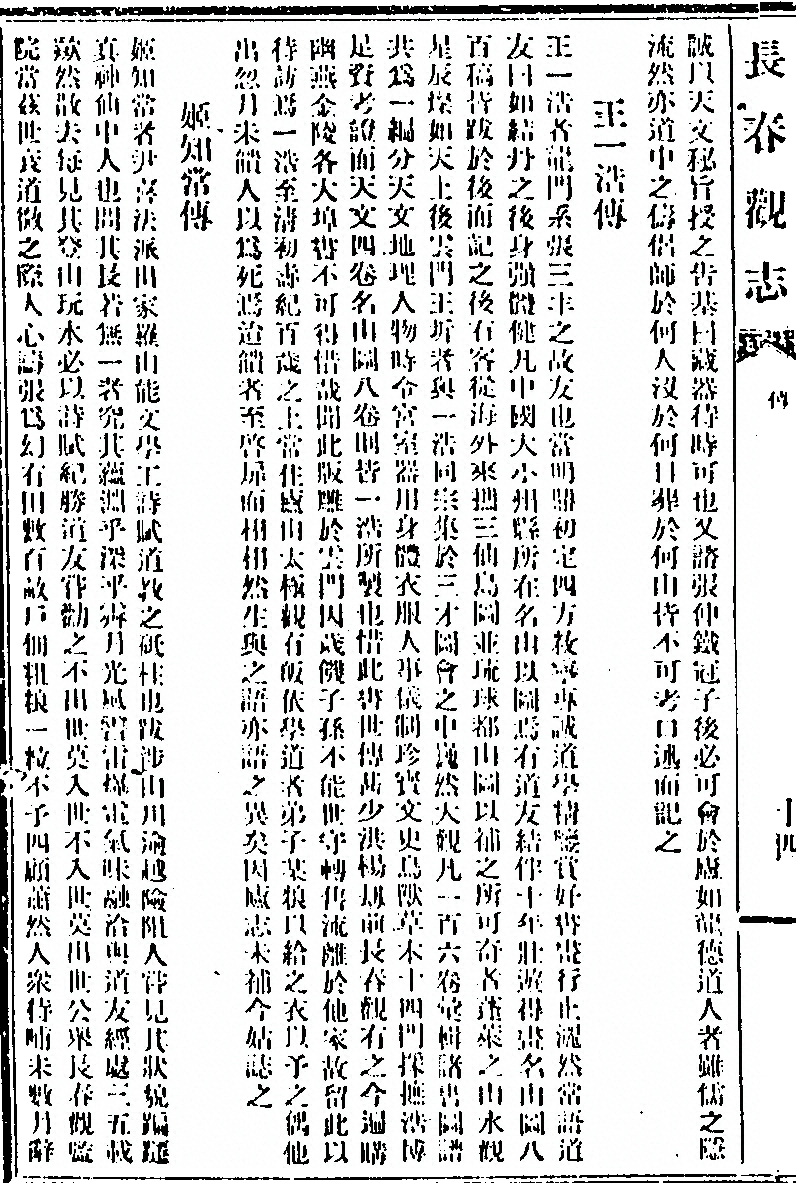 長春觀志
傳
十四
誠以天文秘旨授之告基曰藏器待時可也又語張仲鐵冠子後必可會於廬如龍德道人者雖儒之隱
流然亦道中之儔侶師於何人沒於何日葬於何山皆不可考口述而記之
王一浩傳
王一浩者龍門系張三丰之故友也當明鼎初定四方敉寧專誠道學精鑒賞好書畫行止汎然常語道
友曰如結丹之後身強體健凡中國大小州縣所在名山以圖焉有道友結伴十年壯遊得畫名山圖八
百稿皆跋於後而記之後有客從海外來携三仙島圖並琉球都山圖以補之所可奇者蓬萊之山水觀
星辰墚如天上後雲門王圻者與一浩同宗集於三才圖會之中巍然大觀凡一百六卷彙輯諸書圖譜
共爲一編分天文地理人物時令宮室器用身體衣服人事儀制珍寶文史鳥獸草木十四門採摭浩博
足資考證而天文四卷名山圖八卷則皆一浩所製也惜此書世傳甚少洪楊刧前長春觀有之今遍購
幽燕金陵各大埠書不可得惜哉聞此版雕於雲門因歲饑子孫不能世守轉售流離於他家故留此以
待訪焉一浩至淸初壽紀百歲之上常住廬山太極觀有皈依學道者弟子某粮以給之衣以予之偶他
出忽月未饋人以爲死焉迨饋者至啓扉而栩栩然生與之語亦語之異矣因廬志未補今姑誌之
姬知常傳
姬知常者尹喜法派出家羅山能文學工詩賦道敎之砥柱也跋涉山川渝越險阻人皆見其狀貌蹁躚
真神仙中人也問其長若無一者究其蘊淵乎深乎霽月光風響雷爆電氣味融洽與道友經處三五載
歘然散去每見其登山玩水必以詩賦紀勝道友皆勸之不出世莫入世不入世莫出世公舉長春觀監
院當茲世衰道微之際人心譸張爲幻有田數百畝戶佃粗粮一粒不予四顧蕭然人衆待哺未數月辭